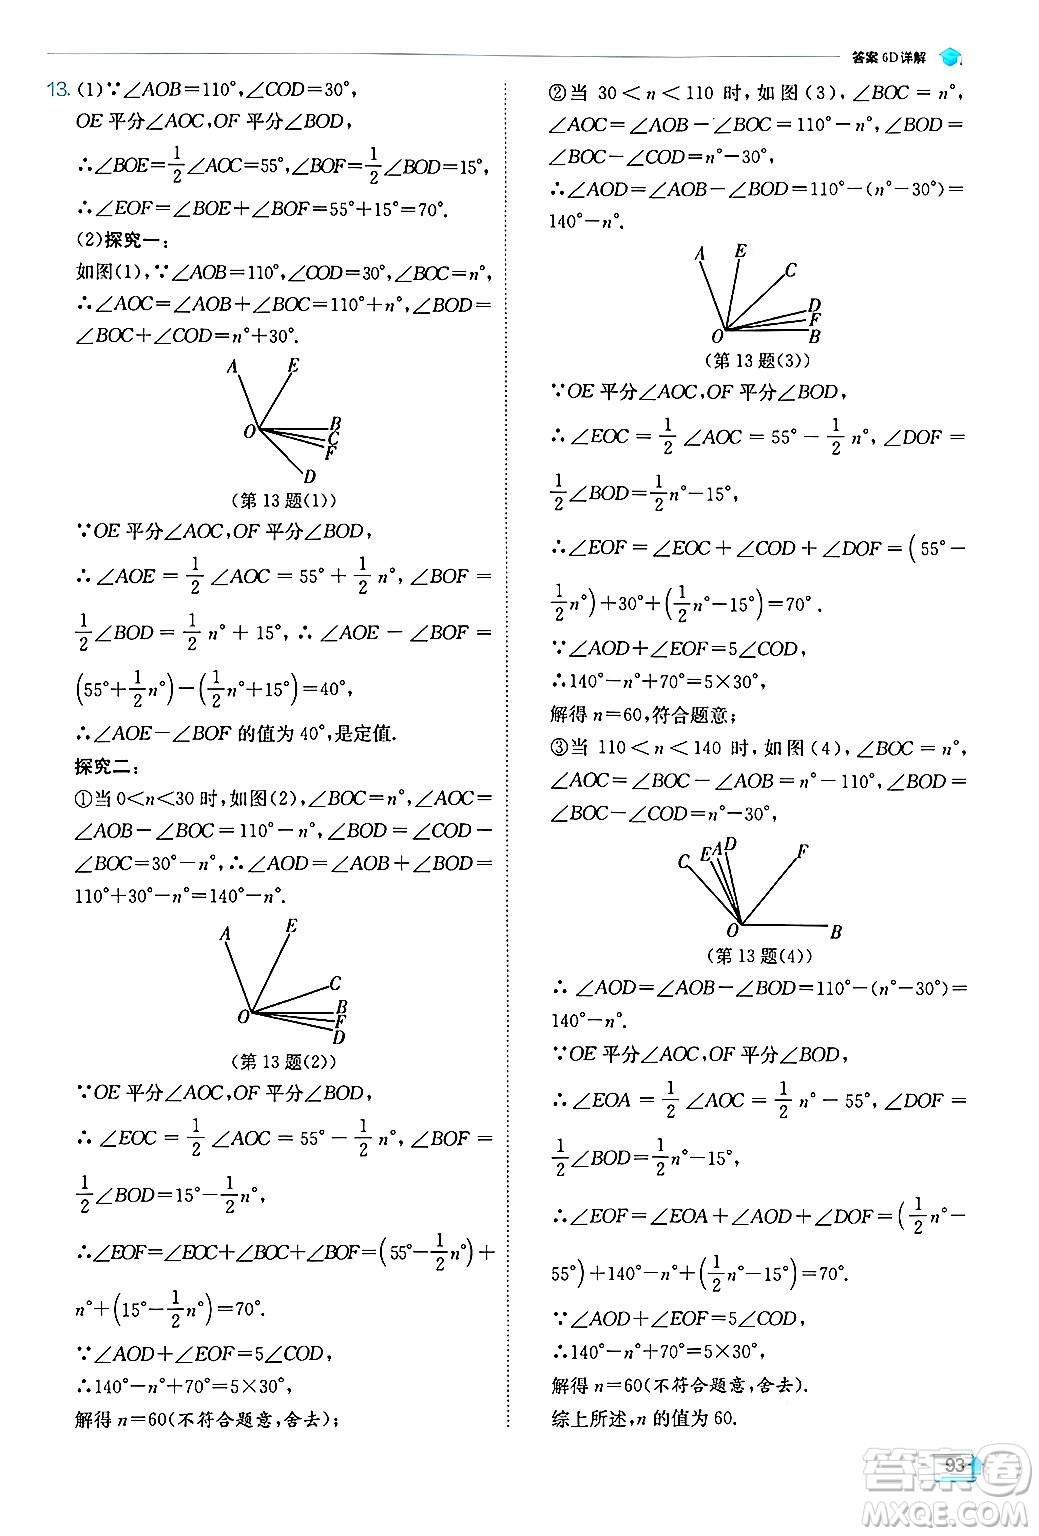 答案 6D 详解
13. (1)∵∠AOB=110°,∠COD=30°,
OE 平分∠AOC,OF 平分∠BOD,
∴∠BOE=1/2∠AOC=55°,∠BOF=1/2∠BOD=15°,
∴∠EOF=∠BOE+∠BOF=55°+15°=70°.
(2)探究一:
如图(1),∵∠AOB=110°,∠COD=30°,∠BOC=n°,
∴∠AOC=∠AOB+∠BOC=110°+n°,∠BOD=
∠BOC+∠COD=n°+30°.
A E
O B
C
F
D
(第 13 题(1))
∵OE 平分∠AOC,OF 平分∠BOD,
∴∠AOE=1/2∠AOC=55°+1/2n°,∠BOF=
1/2∠BOD=1/2n°+15°,∴∠AOE-∠BOF=
(55°+1/2n°)-(1/2n°+15°)=40°,
∴∠AOE-∠BOF 的值为 40°,是定值.
探究二:
①当 0<n<30 时,如图(2),∠BOC=n°,∠AOC=
∠AOB-∠BOC=110°-n°,∠BOD=∠COD-
∠BOC=30°-n°,∴∠AOD=∠AOB+∠BOD=
110°+30°-n°=140°-n°.
A E
C
O B
F
D
(第 13 题(2))
∵OE 平分∠AOC,OF 平分∠BOD,
∴∠EOC=1/2∠AOC=55°-1/2n°,∠BOF=
1/2∠BOD=15°-1/2n°,
∴∠EOF=∠EOC+∠BOC+∠BOF=(55°-1/2n°)+
n°+(15°-1/2n°)=70°.
∵∠AOD+∠EOF=5∠COD,
∴140°-n°+70°=5×30°,
解得 n=60(不符合题意,舍去);
②当 30<n<110 时,如图(3),∠BOC=n°,
∠AOC=∠AOB-∠BOC=110°-n°,∠BOD=
∠BOC-∠COD=n°-30°,
∴∠AOD=∠AOB-∠BOD=110°-(n°-30°)=
140°-n°.
A E
C
D
F
O B
(第 13 题(3))
∵OE 平分∠AOC,OF 平分∠BOD,
∴∠EOC=1/2∠AOC=55°-1/2n°,∠DOF=
1/2∠BOD=1/2n°-15°,
∴∠EOF=∠EOC+∠COD+∠DOF=(55°-
1/2n°)+30°+(1/2n°-15°)=70°.
∵∠AOD+∠EOF=5∠COD,
∴140°-n°+70°=5×30°,
解得 n=60,符合题意;
③当 110<n<140 时,如图(4),∠BOC=n°,
∠AOC=∠BOC-∠AOB=n°-110°,∠BOD=
∠BOC-∠COD=n°-30°,
C E A D F
O B
(第 13 题(4))
∴∠AOD=∠AOB-∠BOD=110°-(n°-30°)=
140°-n°.
∵OE 平分∠AOC,OF 平分∠BOD,
∴∠EOA=1/2∠AOC=1/2n°-55°,∠DOF=
1/2∠BOD=1/2n°-15°,
∴∠EOF=∠EOA+∠AOD+∠DOF=(1/2n°-
55°)+140°-n°+(1/2n°-15°)=70°.
∵∠AOD+∠EOF=5∠COD,
∴140°-n°+70°=5×30°,
解得 n=60(不符合题意,舍去).
综上所述,n 的值为 60.
93
答案圈
MXQE.COM